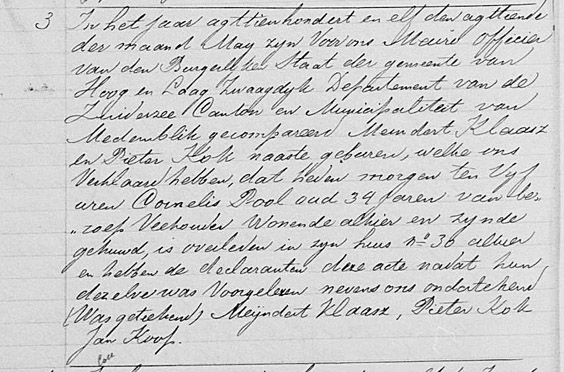 3 In het jaar agttienhondert en elf den agttiende
der maand May zyn Voor ons Maire Officier
van den Burgerlyke Staat der gemeente van
Hoog en Laag Zwaagdyk Departement van de
Zuiderzee Canton en Municipaliteit van
Medemblik gecompareerd Meindert Klaasz
en Pieter Kok naaste geburen, welke ons
Verklaard hebben, dat heden morgen ten Vyf
uren Cornelis Pool oud 34 Jaren van be-
„roep Veehouder Wonende alhier en zynde
gehuwd, is overleden in zyn huis no 36 alhier
en hebben de declaranten deze acte nadat hun
dezelve was Voorgelezen nevens ons ondertekend
(Was getekend) Meijndert Klaasz, Pieter Kok
Jan Koop.